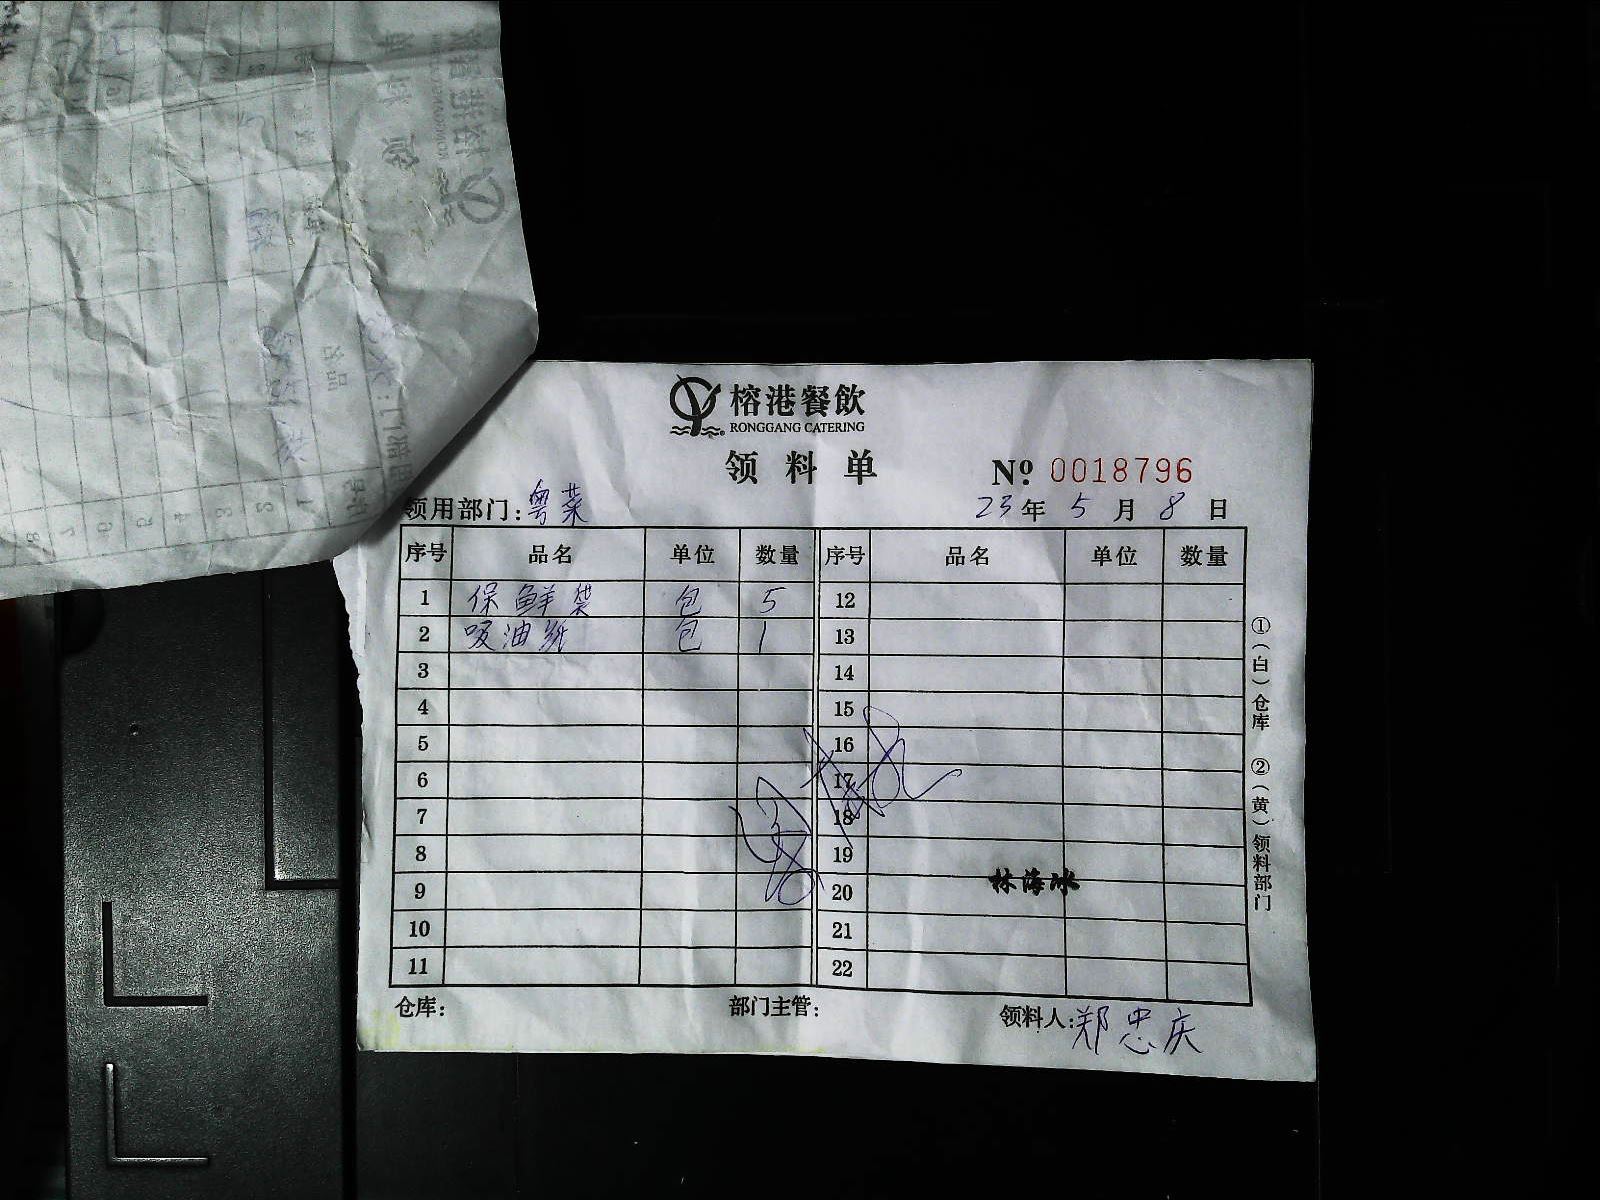 榕港餐飲
RONGGANG CATERING
领料单 № 0018796
领用部门：粤菜 23年5月8日
序号 品名 单位 数量 序号 品名 单位 数量
1 保鲜袋 包 5 12
2 吸油纸 包 1 13
3 14
4 15
5 16
6 17
7 18
8 19
9 20 林海冰
10 21
11 22
仓库： 部门主管： 领料人：郑忠庆
①（白）仓库 ②（黄）领料部门